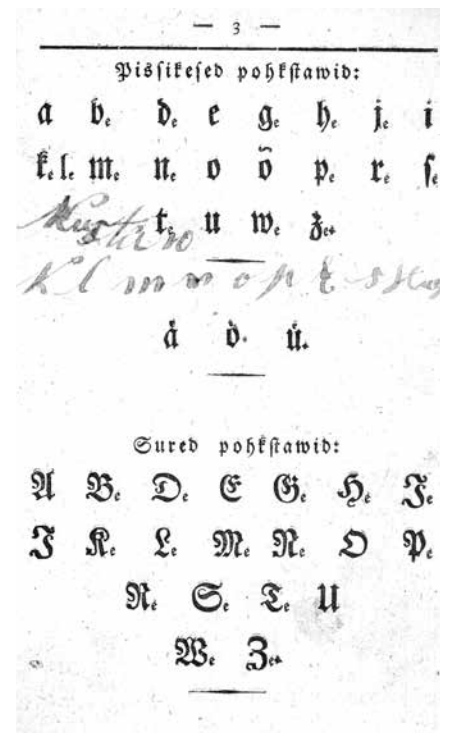 — 3 —
Pissikesed pohkstawid:
a be de e ge he je i
ke le me ne o õ pe re se
te u we zet
K l m n o p
ä ö. ü.
Sured pohkstawid:
A Be De E Ge He Je
I Ke Le Me Ne O Pe
Re Se Te U
We Zet